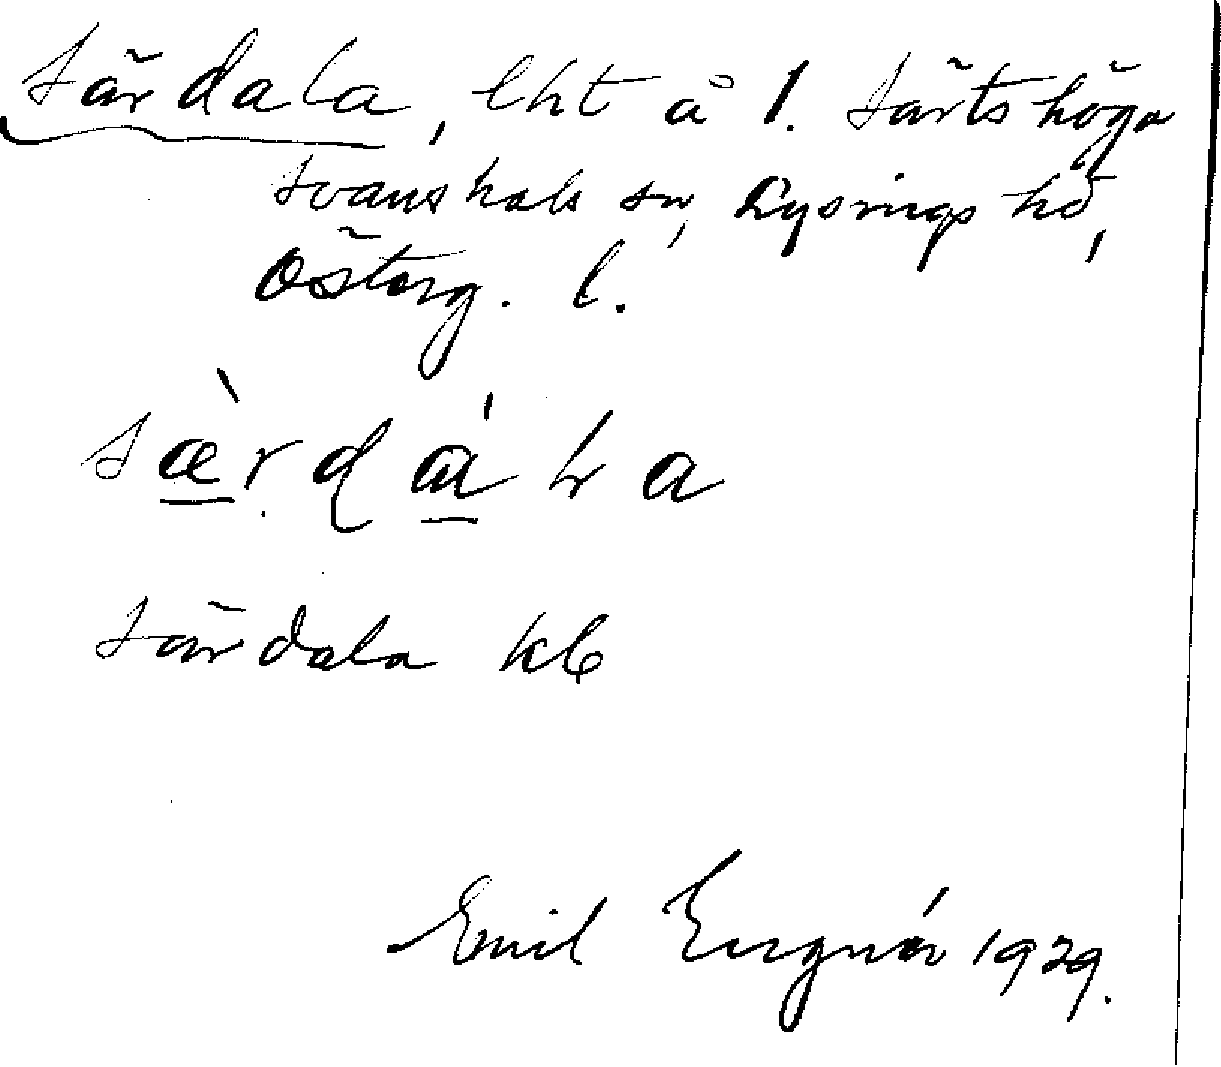 Särdala, lht å 1. Särtshöga
Svanshals sn, Lysings hd,
Österg. l.
sæ̀rdála
Särdala kb
Emil 1929.